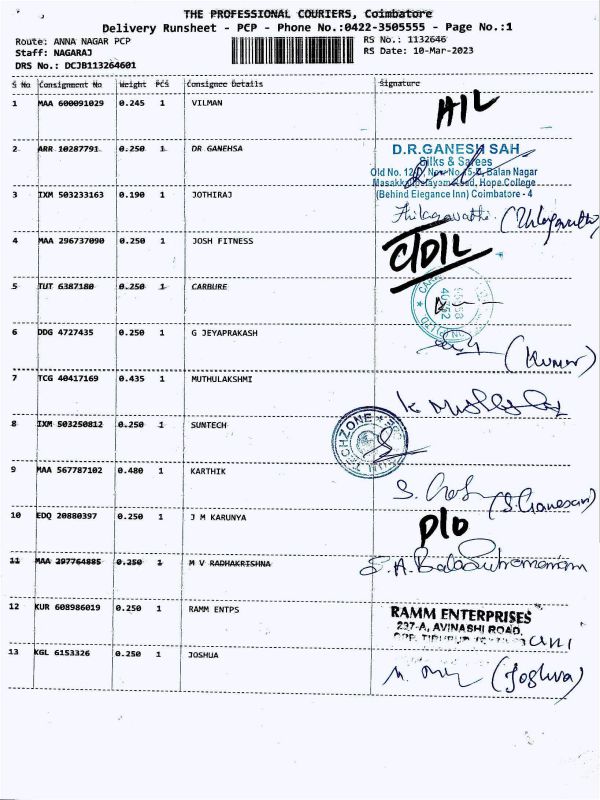 THE PROFESSIONAL COURIERS, Coimbatore
Delivery Runsheet - PCP - Phone No.:0422-3505555 - Page No.:1
Route: ANNA NAGAR PCP
RS No.: 1132646
Staff: NAGARAJ
RS Date: 10-Mar-2023
DRS No.: DCJB113264601
S No Consignment No Weight PCS Consignee Details Signature
1 MAA 600091029 0.245 1 VILMAN
2 ARR 10287791 0.250 1 DR GANEHSA
D.R.GANESH SAH
Silks & Sarees
Balan Nagar
Hope College
(Behind Elegance Inn) Coimbatore - 4
3 IXM 503233163 0.190 1 JOTHIRAJ
Thilagavathi
4 MAA 296737090 0.250 1 JOSH FITNESS
5 TUT 6387180 0.250 1 CARBURE
6 DDG 4727435 0.250 1 G JEYAPRAKASH
(Kumar)
7 TCG 40417169 0.435 1 MUTHULAKSHMI
8 IXM 503250812 0.250 1 SUNTECH
TECHZONE
9 MAA 567787102 0.480 1 KARTHIK
(S.Ganesan)
10 EDQ 20880397 0.250 1 J M KARUNYA
D/O
11 MAA 297764885 0.250 1 M V RADHAKRISHNA
S.A.Balasubramaniam
12 KUR 608986019 0.250 1 RAMM ENTPS
RAMM ENTERPRISES
237-A, AVINASHI ROAD,
13 KGL 6153326 0.250 1 JOSHUA
(Joshua)